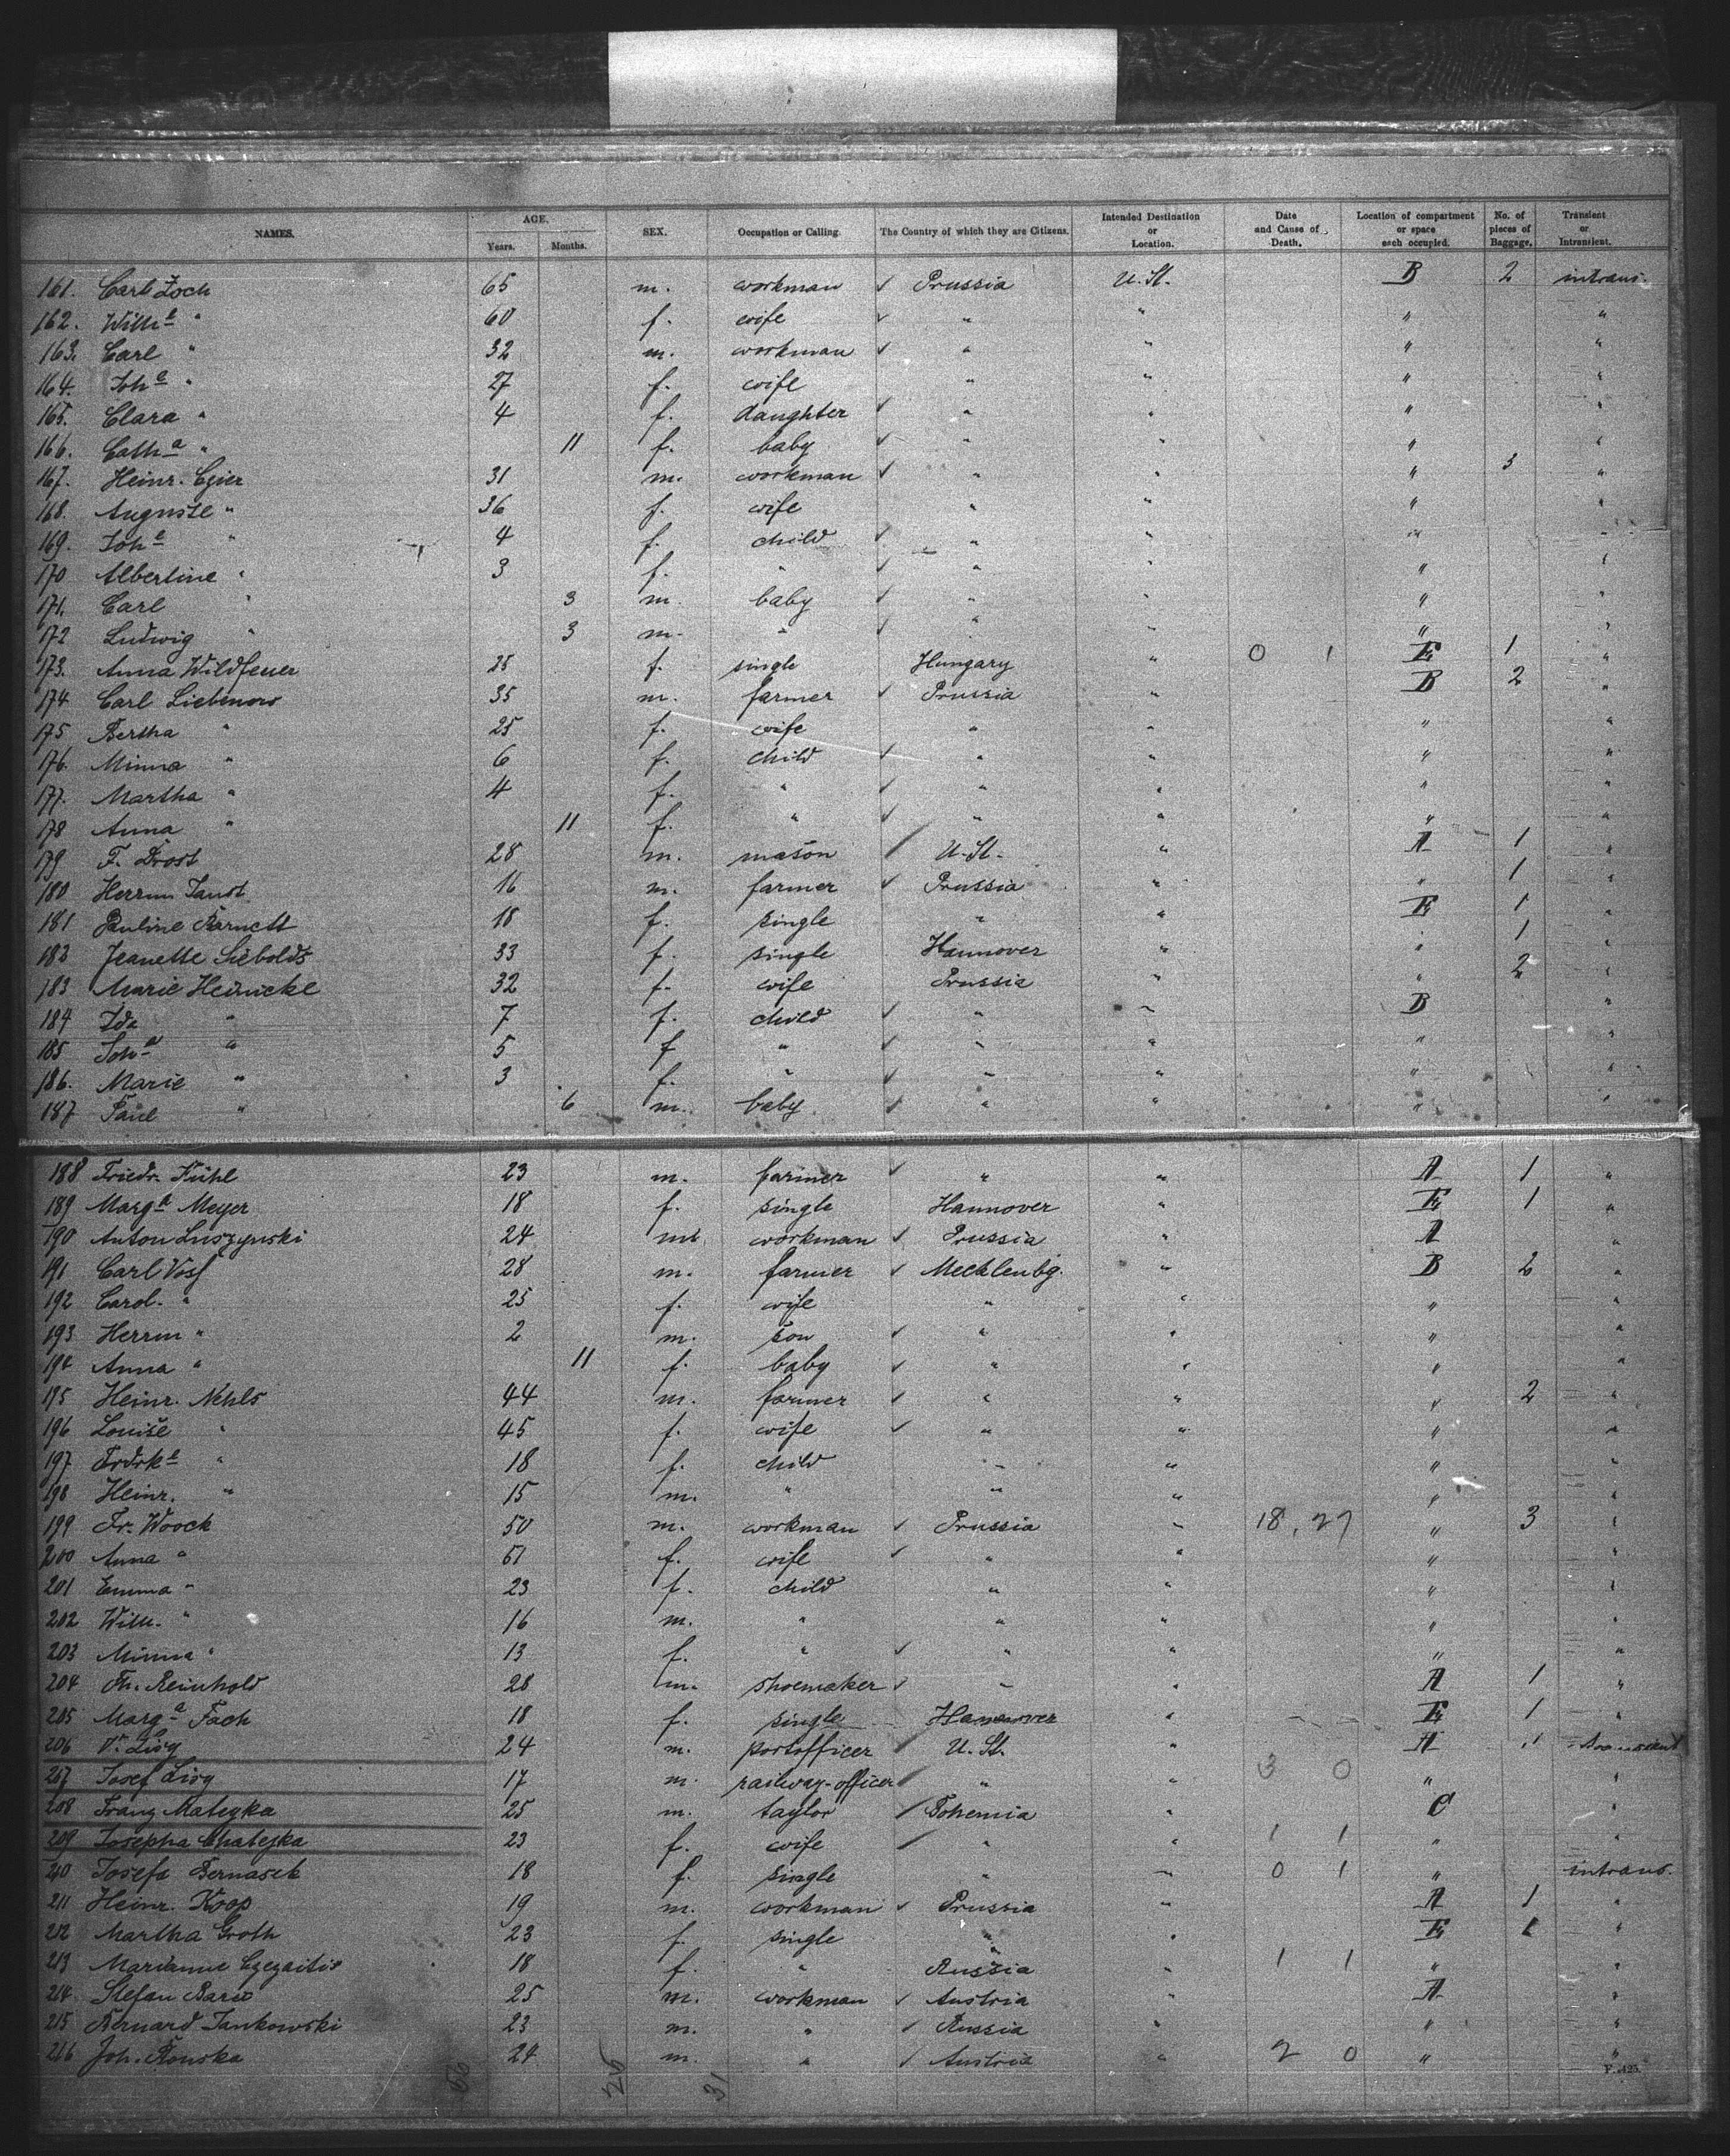 NAMES. AGE. Years. Months. SEX. Occupation or Calling. The Country of which they are Citizens. Intended Destination or Location. Date and Cause of Death. Location of compartment or space each occupied. No. of pieces of Baggage. Transient or Intransient.
161. Carl Zoch 65 m. workman ✓ Prussia U. St. B 2 intrans.
162. Wilhe " 60 f. wife ✓ " " " "
163. Carl " 32 m. workman ✓ " " " "
164. Johe " 27 f. wife " " " "
165. Clara " 4 f. daughter ✓ " " " "
166. Catha " 11 f. baby ✓ " " " "
167. Heinr. Czier 31 m. workman ✓ " " " 3 "
168. Auguste " 36 f. wife " " " "
169. Johe " 4 f. child ✓ " " " "
170 Albertine " 3 f. " ✓ " " " "
171. Carl " 3 m. baby ✓ " " " "
172 Ludwig " 3 m. " ✓ " " " "
173. Anna Wildfeuer 25 f. single Hungary " 0 1 E 1 "
174 Carl Liebenow 35 m. farmer ✓ Prussia " B 2 "
175 Bertha " 25 f. wife " " " "
176. Minna " 6 f. child ✓ " " " "
177. Martha " 4 f. " ✓ " " " "
178 Anna " 11 f. " ✓ " " " "
179 F. Drost 28 m. mason / U. St. A 1 "
180 Herrm Janst 16 m. farmer ✓ Prussia " " 1 "
181 Pauline Barnett 18 f. single " " E 1 "
182 Jeanette Siebolds 33 f. single Hannover " " 1 "
183 Marie Heinicke 32 f. wife Prussia " " 2 "
184 Ida " 7 f. child ✓ " " B "
185 Joha " 5 f " ✓ " " " "
186. Marie " 3 f. " ✓ " " " "
187 Paul " 6 m. baby ✓ " " " "
188 Friedr. Kühl 23 m. farmer ✓ " " A 1 "
189 Marga Meyer 18 f. single Hannover " E 1 "
190 Anton Luszynski 24 m. workman ✓ Prussia " A "
191 Carl Voss 28 m. farmer ✓ Mecklenbg. " B 2 "
192 Carol. " 25 f. wife " " " "
193 Herrm " 2 m. son ✓ " " " "
194 Anna " 11 f. baby ✓ " " " "
195 Heinr. Nehls 44 m. farmer ✓ " " " 2 "
196 Louise " 45 f. wife ✓ " " " "
197 Frdrke " 18 f. child " " " "
198 Heinr. " 15 m. " " " " "
199 Fr. Woock 50 m. workman ✓ Prussia " 18, 27 " 3 "
200 Anna " 51 f. wife ✓ " " " "
201 Emma " 23 f. child " " " "
202 Wilh. " 16 m. " " " " "
203 Minna " 13 f. " ✓ " " " "
204 Th. Reinhold 28 m. shoemaker ✓ " " A 1 "
205 Marga Fach 18 f. single Hannover " E 1 "
206 V. Lisy 24 m. portofficer U. St. " A " transient
207 Josef Lisy 17 m. railway-officer / " " 3 0 " "
208 Franz Matejka 25 m. taylor / Bohemia " C "
209 Josepha Matejka 23 f. wife / " " 1 1 " "
210 Josefa Bernasek 18 f. single " " 0 1 " intrans.
211 Heinr. Koop 19 m. workman ✓ Prussia " A 1 "
212 Martha Groth 23 f. single " " E 1 "
213 Marianne Czezaitis 18 f. " Russia " 1 1 " "
214 Stefan Baric 25 m. workman ✓ Austria " A "
215 Bernard Jankowski 23 m. " ✓ Russia " " "
216 Joh. Rouska 24 m. " ✓ Austria " 2 0 " "
F. 425.
31